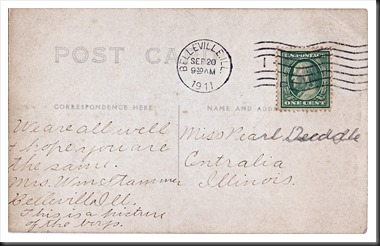 POST CA
BELLEVILLE, ILL.
SEP 20
9 30 AM
1911
U.S. POSTAGE
ONE CENT
CORRESPONDENCE HERE
NAME AND ADD
We are all well
& hope you are
the same.
Mrs. Wm
Belleville Ill.
This is a picture
of the boys.
Miss Pearl
Centralia
Illinois.